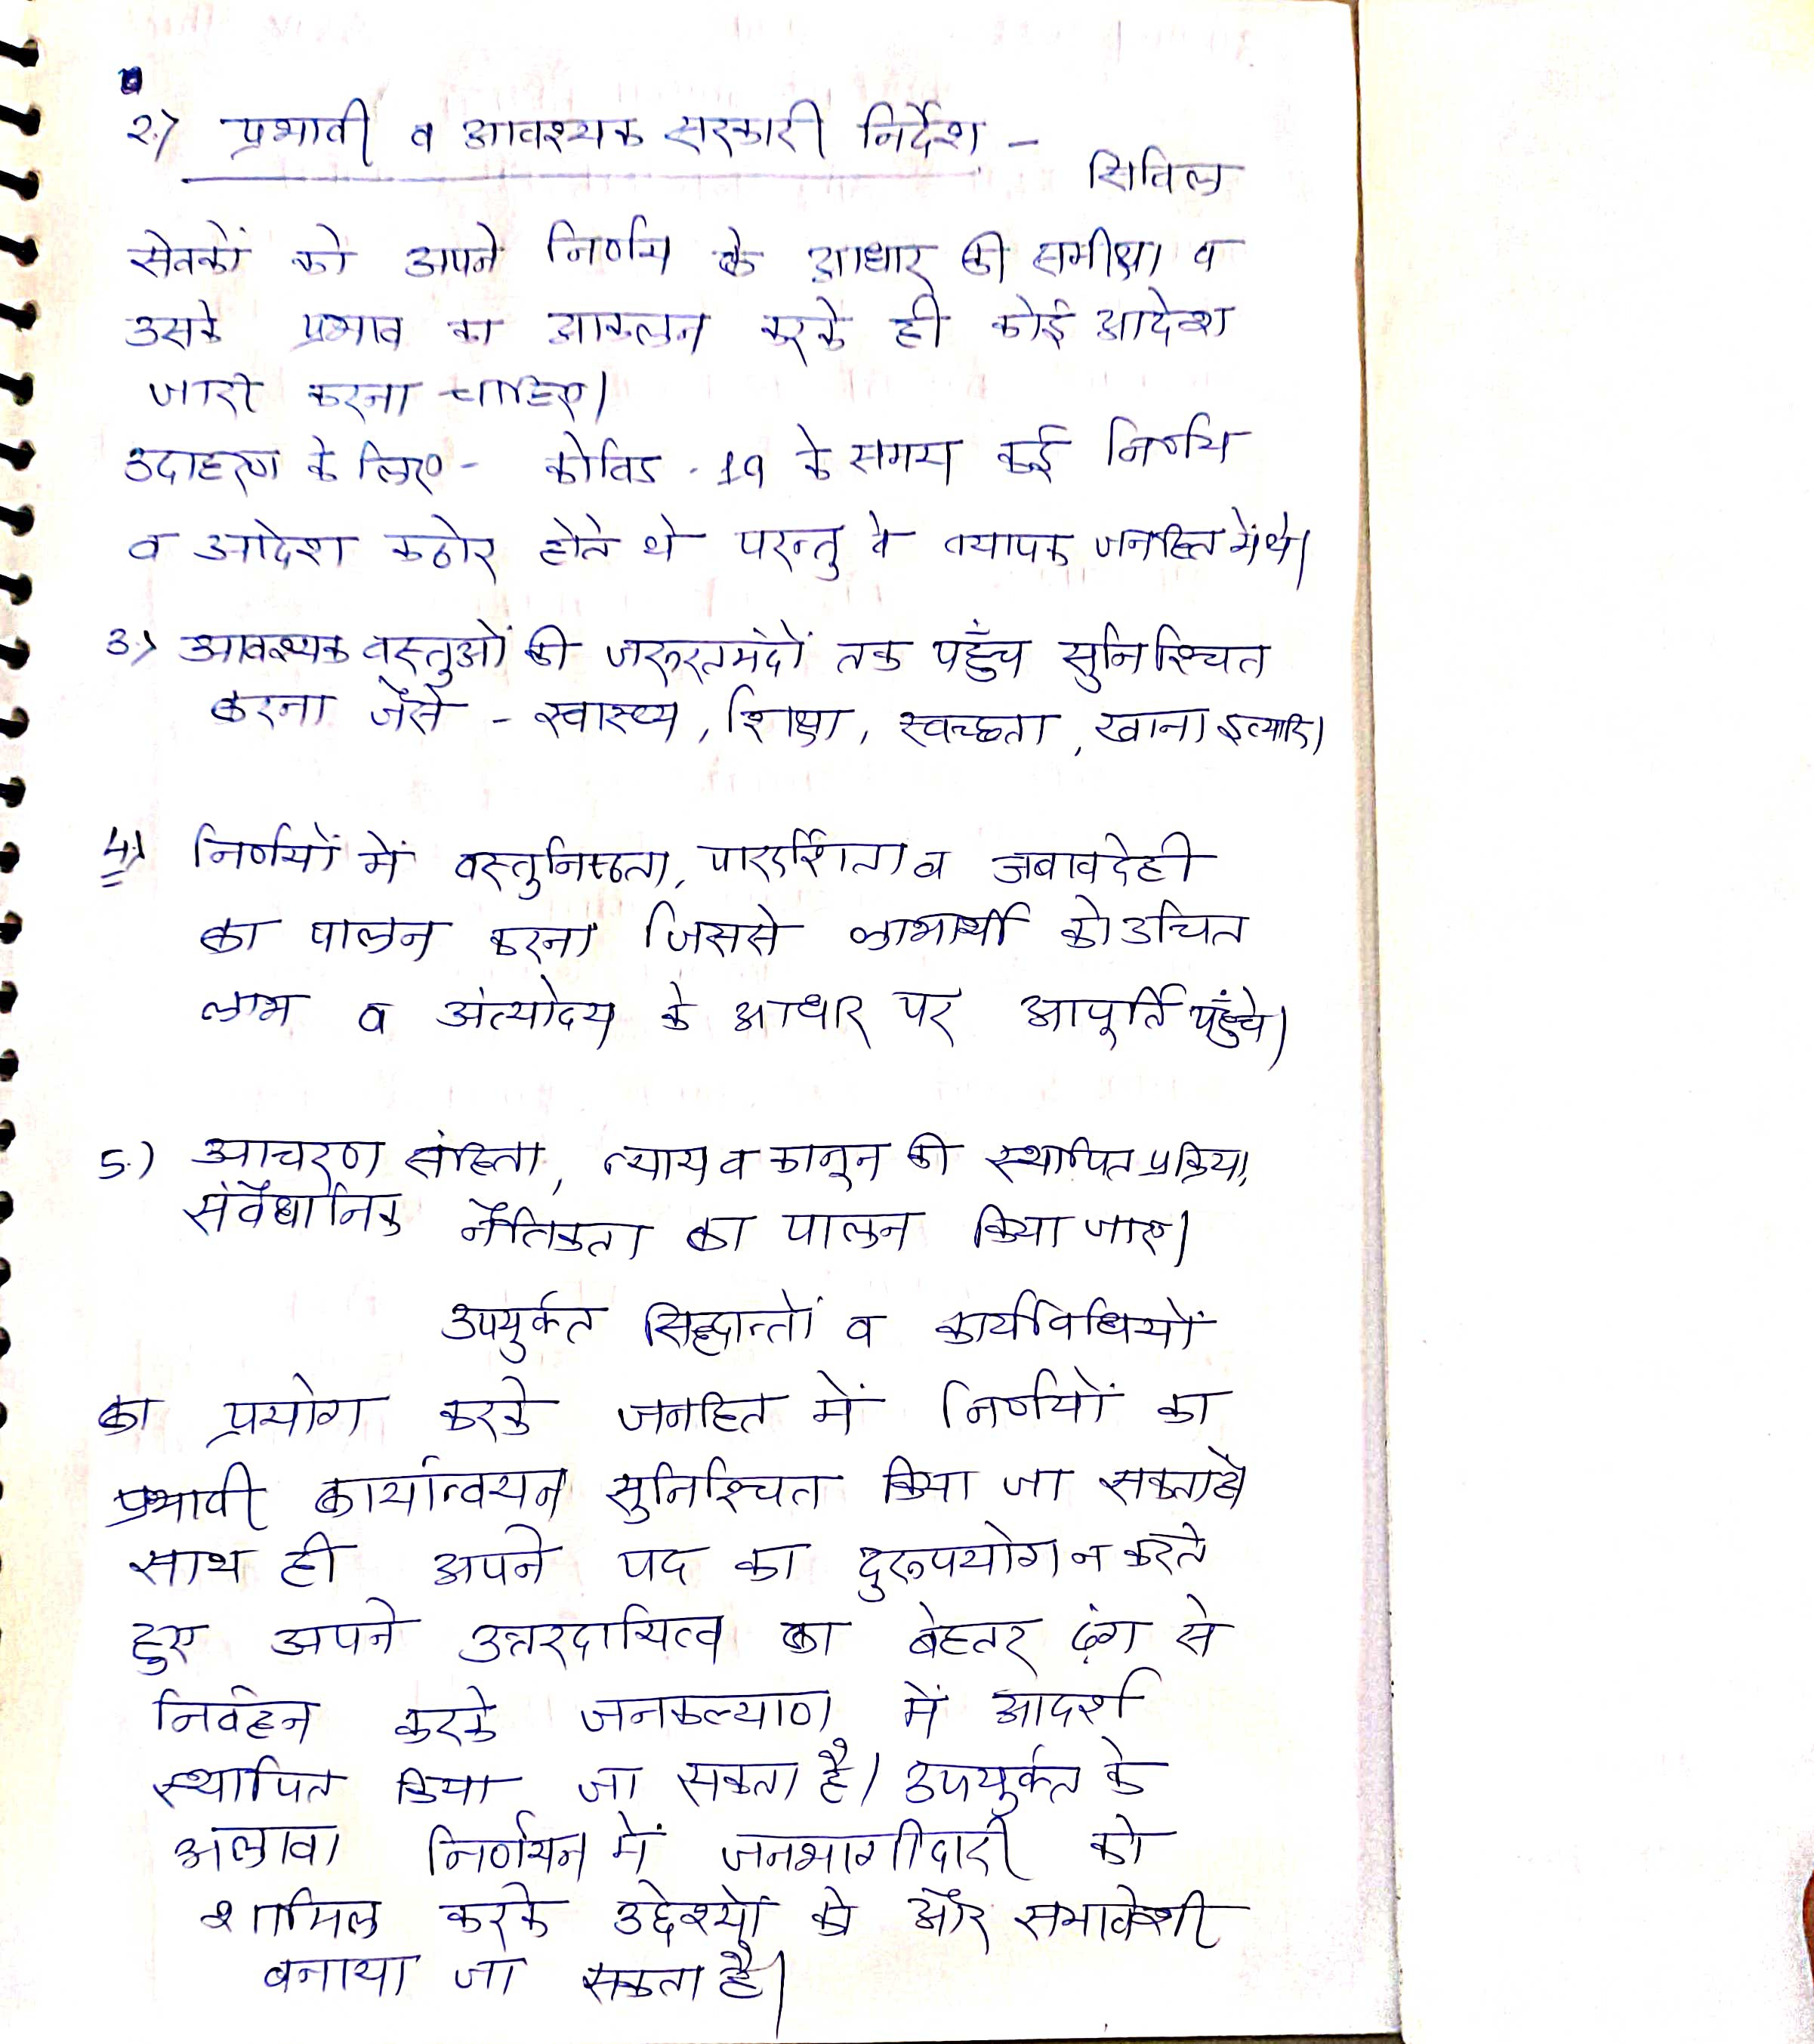 2.) प्रभावी व आवश्यक सरकारी निर्देश -
सिविल
सेवकों को अपने निर्णय के आधार की समीक्षा व
उसके प्रभाव का आकलन करके ही कोई आदेश
जारी करना चाहिए।
उदाहरण के लिए - कोविड -19 के समय कई निर्णय
व आदेश कठोर होते थे परन्तु वे व्यापक जनहित में थे।
3.) आवश्यक वस्तुओं की जरूरतमंदों तक पहुँच सुनिश्चित
करना जैसे - स्वास्थ्य, शिक्षा, स्वच्छता, खाना इत्यादि।
4.) निर्णयों में वस्तुनिष्ठता, पारदर्शिता व जवाबदेही
का पालन करना जिससे लाभार्थी को उचित
लाभ व अंत्योदय के आधार पर आपूर्ति पहुँचे।
5.) आचरण संहिता, न्याय व कानून की स्थापित प्रक्रिया,
संवैधानिक नैतिकता का पालन किया जाए।
उपर्युक्त सिद्धान्तों व कार्यविधियों
का प्रयोग करके जनहित में निर्णयों का
प्रभावी कार्यान्वयन सुनिश्चित किया जा सकता है
साथ ही अपने पद का दुरूपयोग न करते
हुए अपने उत्तरदायित्व का बेहतर ढंग से
निर्वहन करके जनकल्याण में आदर्श
स्थापित किया जा सकता है। उपर्युक्त के
अलावा निर्णयन में जनभागीदारी को
शामिल करके उद्देश्यों को और समावेशी
बनाया जा सकता है।